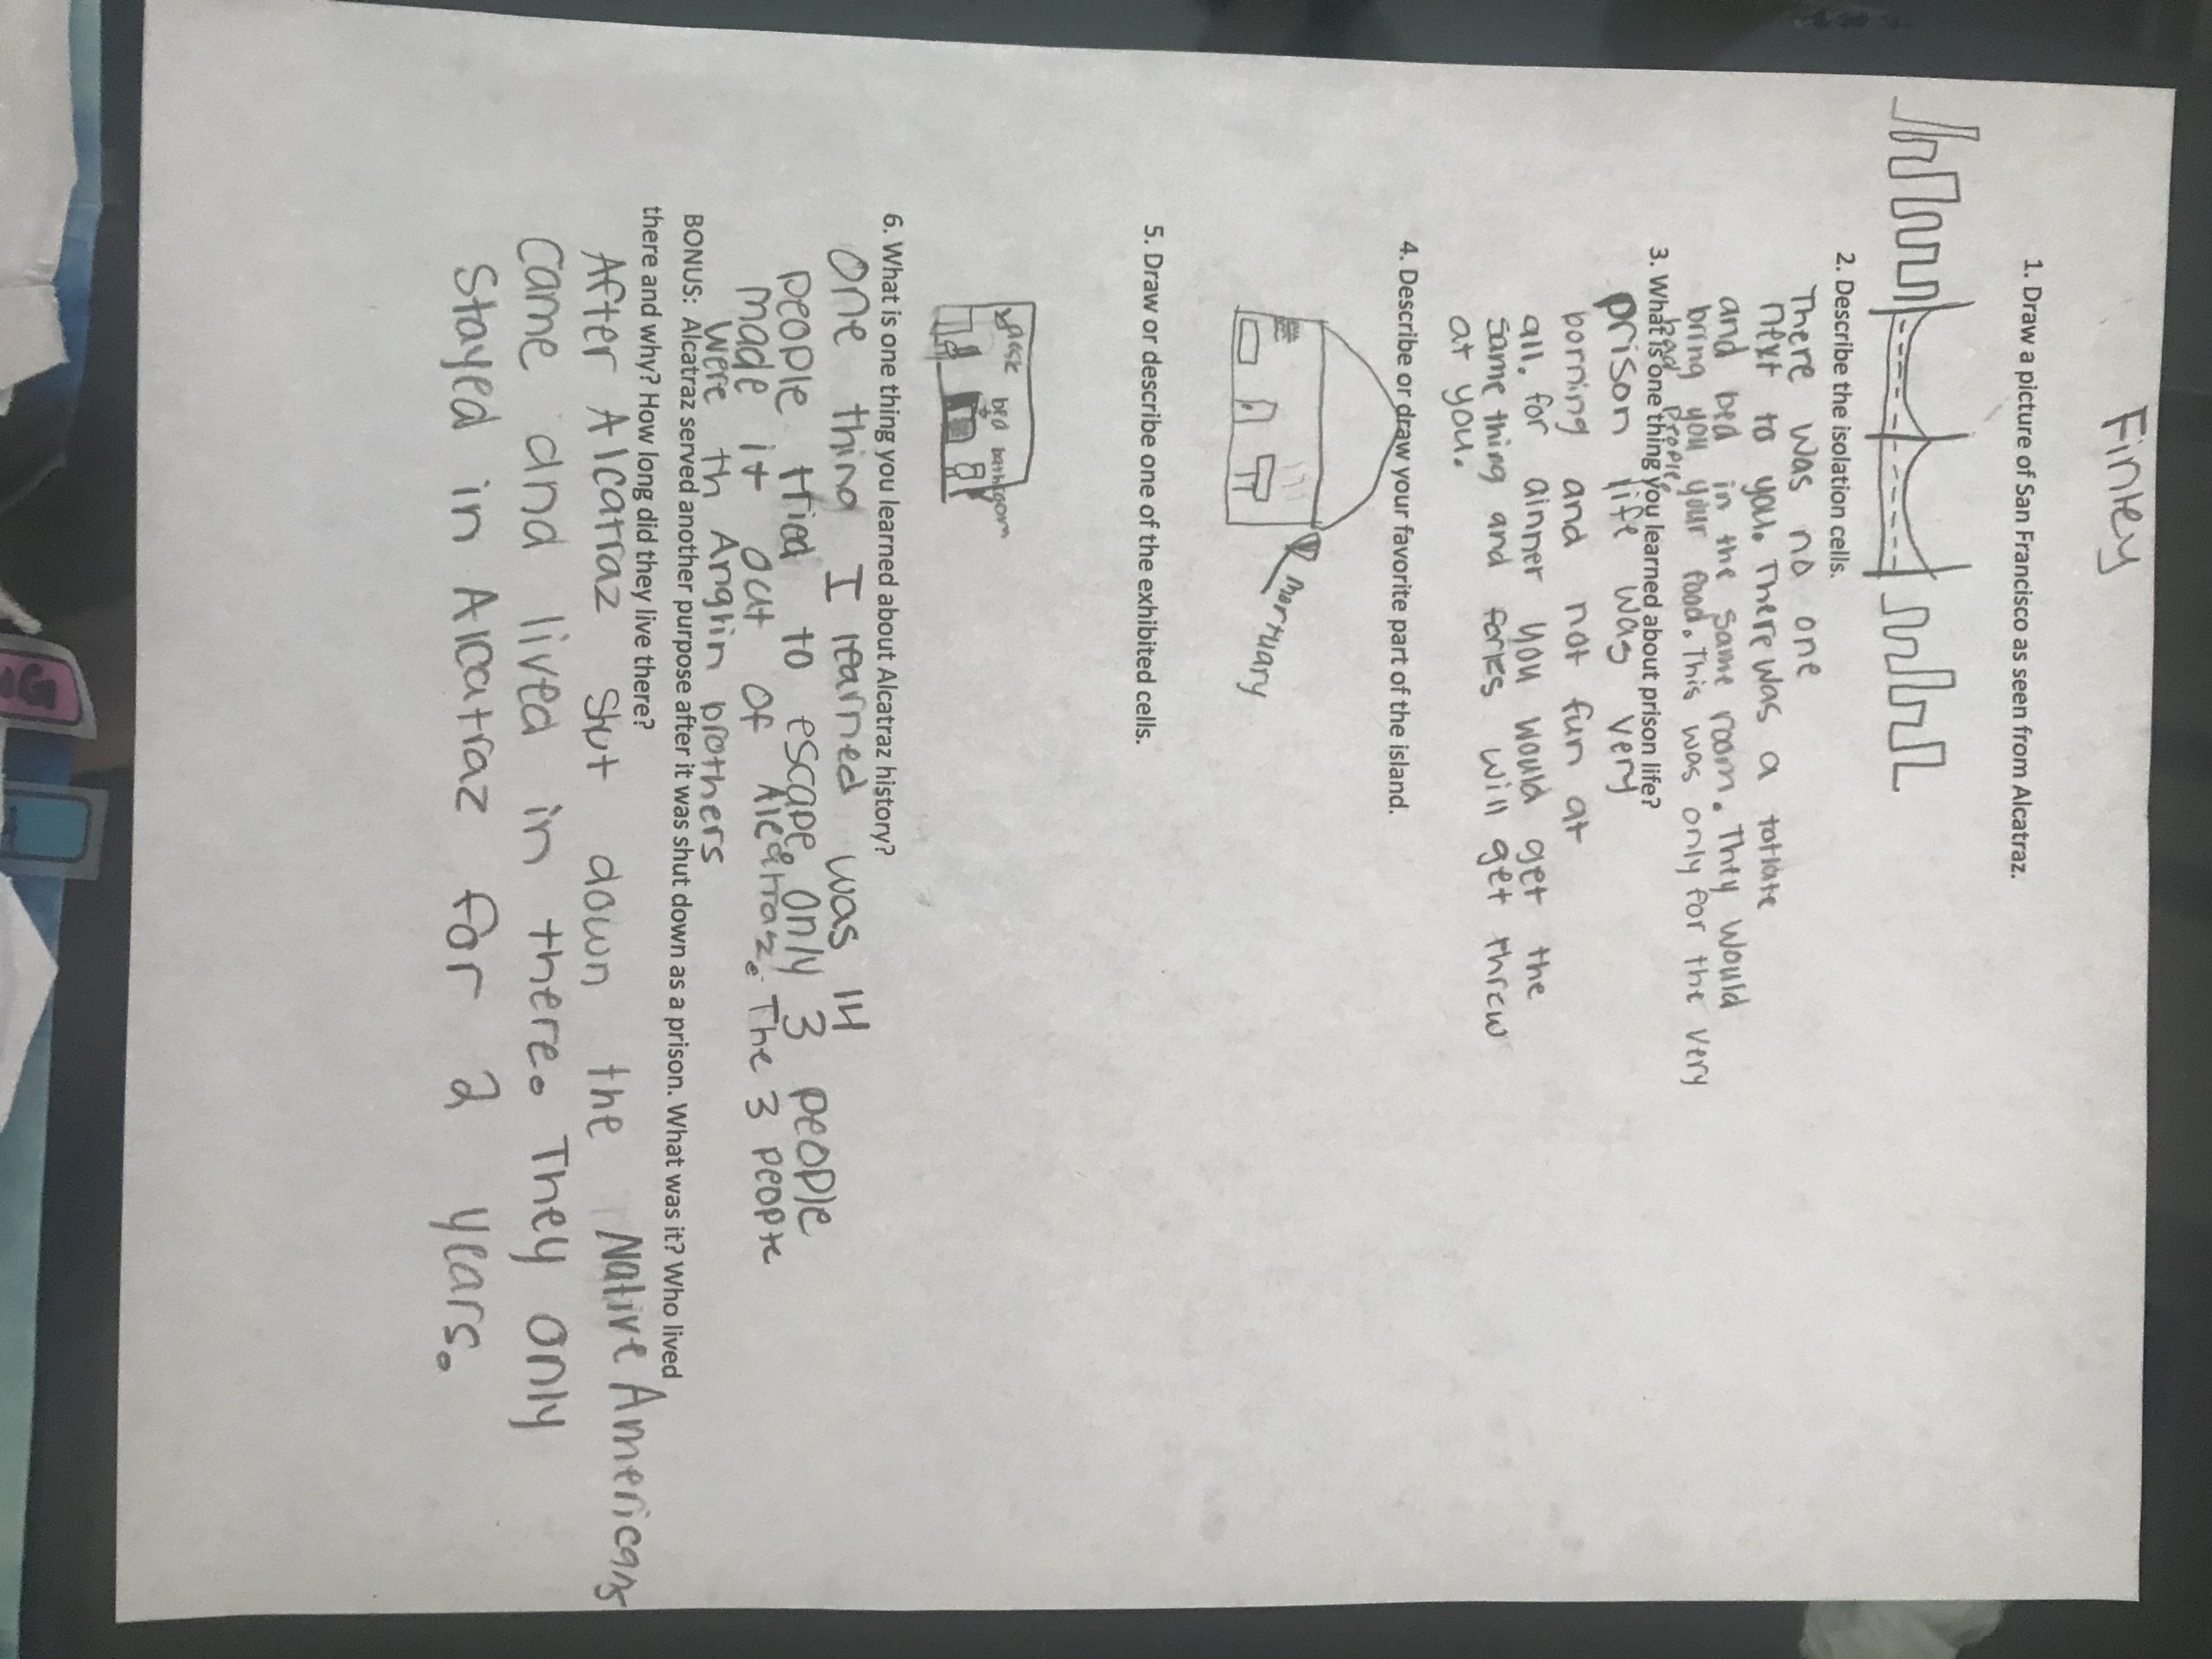 Finley
1. Draw a picture of San Francisco as seen from Alcatraz.
2. Describe the isolation cells.
There was no one
next to you. There was a
and bed in the same room. They would
bring you your food. This was only for the very
bad people.
3. What is one thing you learned about prison life?
prison life was very
borning and not fun at
all. for dinner you would get the
same thing and forks will get threw
at you.
4. Describe or draw your favorite part of the island.
mortuary
5. Draw or describe one of the exhibited cells.
bed bathroom
6. What is one thing you learned about Alcatraz history?
One thing I learned was 14
people tried to escape. Only 3 people
made it out of Alcatraz. The 3 people
were th Anglin brothers
BONUS: Alcatraz served another purpose after it was shut down as a prison. What was it? Who lived
there and why? How long did they live there?
After Alcatraz shut down the Native Americans
came and lived in there. They only
stayed in Alcatraz for 2 years.